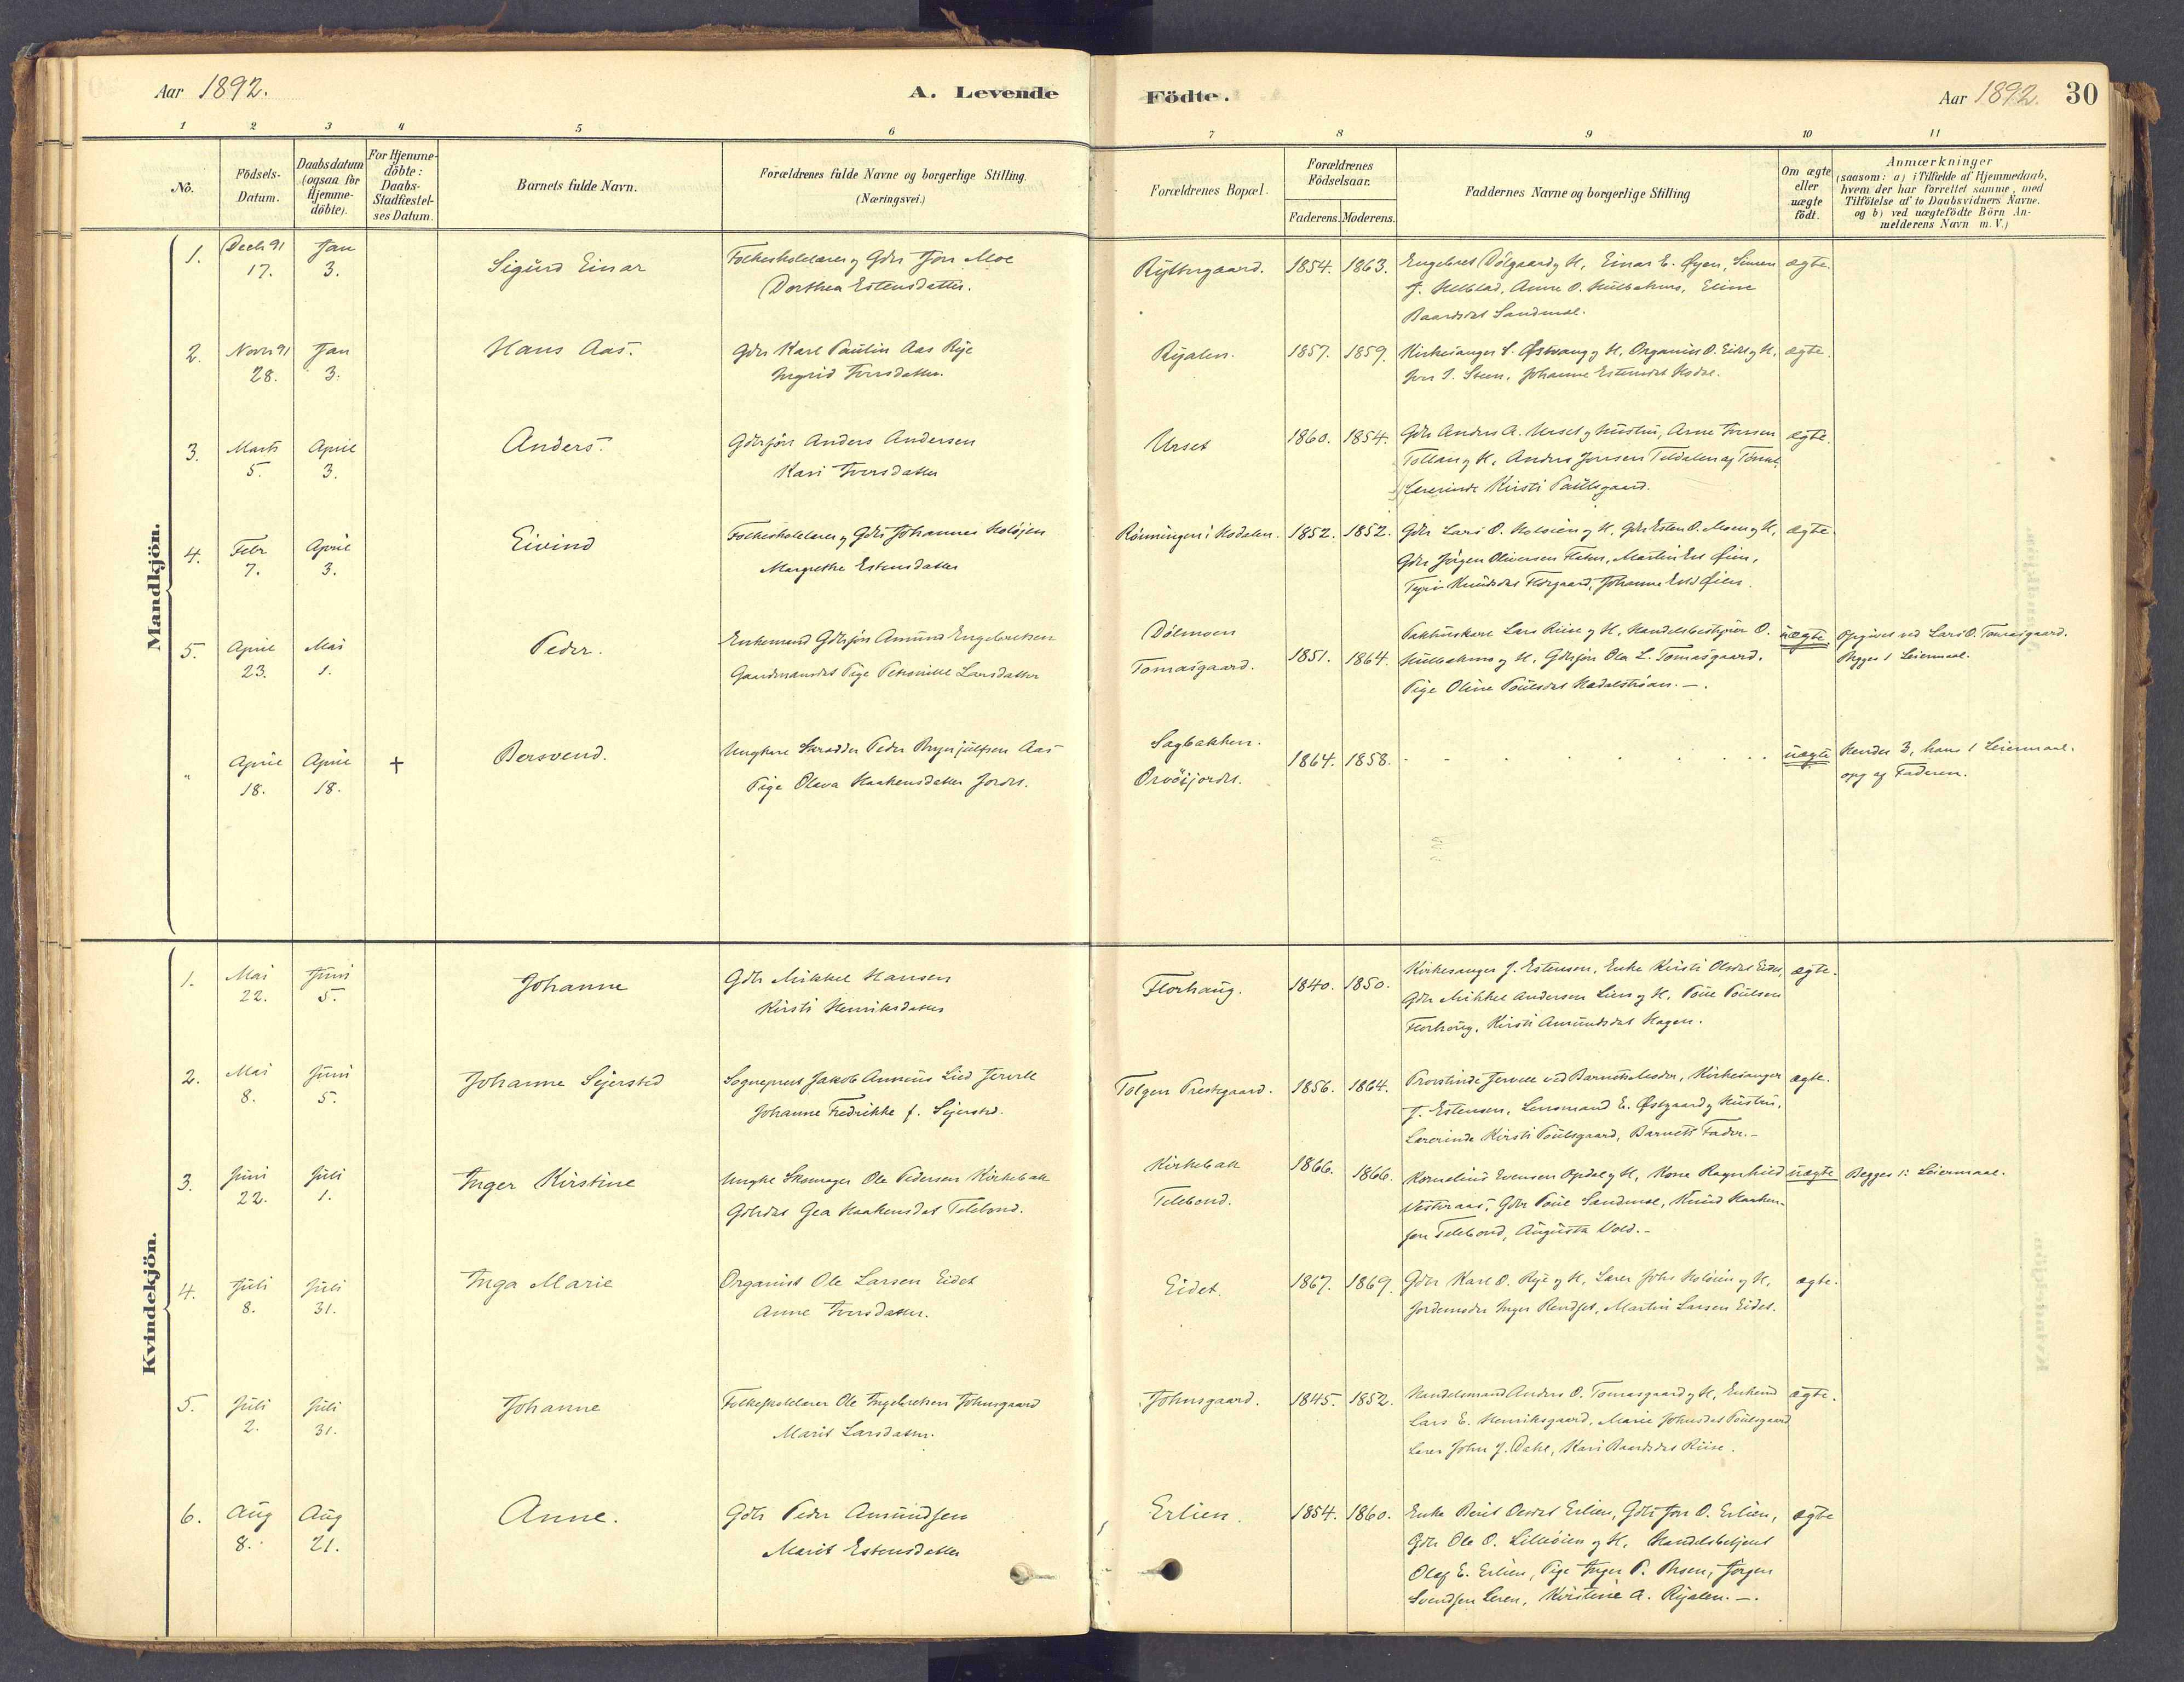 Aar 1892.
A. Levende Födte.
Aar 1892. 30
1 2 3 4 5 6 7 8 9 10 11
No.
Födsels-Datum.
Daabsdatum (ogsaa for Hjemme-döbte).
For Hjemme-döbte: Daabs-Stadfæstel-ses Datum.
Barnets fulde Navn.
Forældrenes fulde Navne og borgerlige Stilling. (Næringsvei.)
Forældrenes Bopæl.
Forældrenes Födselsaar.
Faderens. Moderens.
Faddernes Navne og borgerlige Stilling
Om ægte eller uægte födt.
Anmærkninger
(saasom: a) i Tilfælde af Hjemmedaab,
hvem der har forrettet samme, med
Tilföielse af to Daabsvidners Navne.
og b) ved uægtefödte Börn An-
melderens Navn m. V.)
Mandkjön.
1. Decbr 91 17. Jan 3. Sigurd Einar
Folkeskolelærer og Gdbr Jon Moe
Dorthea Estensdatter.
Ryttergaard. 1854. 1863.
Engebret Dølgaard og H, Einar E. Øyen, Simen
J. Hulbakmo, Eline
Baardsdat Sandmæl.
ægte.
2. Novbr 91 28. Jan 3. Hans Aas.
Gdbr Karl Paulin Aas Rye
Ingrid Iversdatter.
Ryalen. 1857. 1859.
Kirkesanger S. Østvang og H, Organist O. Eidet og H,
Iver I. Steen, Johanne Estensdat Hodal.
ægte.
3. Marts 5. April 3. Anders.
Gdbrsøn Anders Andersen
Kari Iversdatter
Urset 1860. 1854.
Gdbr Anders A. Urset og Hustru, Arne Iversen
Tollan og H, Anders Jonsen Teldalen af Tønset,
Lærerinde Kirsti Paulsgaard.
ægte.
4. Febr 7. April 3. Eivind
Folkeskolelærer og Gdbr Johannes Holøien
Margrethe Estensdatter
Rönningen i Hodalen. 1852. 1852.
Gdbr Lars O. Holøien og H, Gdbr Esten O. Moen og H,
Gdbr Jørgen Oliversen, Martin Øien,
Knudsdat, Johanne Øien.
ægte.
5. April 23. Mai 1. Peder.
Enkemand Gdbrsøn Amund Engebretsen
Gaardmandsdat Pige Petronille Larsdatter
Dölmoen
Tomasgaard.
1851. 1864.
Pakhuskarl Lars Riise og H, Handelsbestyrer O.
Hulbakmo og H, Gdbrsøn Ola L. Tomasgaard.
Pige Oline Poulsdat Hadalstrøen.—.
uægte
Opgivet ved Lars O. Tomasgaard.
Begges 1 Leiermaal.
" April 18. April 18. + Bersvend.
Ungkarl Skrædder Peder Brynjulfsen Aas
Pige Olava Haakensdatter Jordet.
Sagbakken.
Orvösjordet.
1864. 1858.
uægte
Hendes 3, hans 1 Leiermaal.
opg af Faderen.
Kvindekjön.
1. Mai 22. Juni 5. Johanne
Gdbr Mikkel Hansen
Kirsti Henriksdatter
Florhaug. 1840. 1850.
Kirkesanger J. Estensen, Enke Kirsti Olsdat Eidet,
Gdbr Mikkel Andersen Lien og H, Poul Poulsen
Florhaug, Kirsti Amundsdat Hagen.
ægte.
2. Mai 8. Juni 5. Johanne Sejersted
Sogneprest Jakob Anneus Lied Jervell
Johanne Fredrikke f. Sejersted.
Tolgen Prestgaard. 1856. 1864.
Provstinde Jervell ved Barnets Moder, Kirkesanger
J. Estensen, Lensmand E. Østgaard og Hustru,
Lærerinde Kirsti Poulsgaard, Barnets Fader.—
ægte.
3. Juni 22. Juli 1. Inger Kirstine
Ungkl Skomager Ole Pedersen Kirkebak
Gdbrdat Gea Haakensdat Telebond.
Kirkebak
Telebond.
1866. 1866.
Kornelius Evensen Opdal og H, Kone Ragnhild
Vesteraas, Gdbr Poul Sandmæl, Knud Haaken-
sen Telebond, Augusta Vold.—
uægte
Begges 1: Leiermaal.
4. Juli 8. Juli 31. Inga Marie
Organist Ole Larsen Eidet
Anne Iversdatter.
Eidet. 1867. 1869.
Gdbr Karl O. Rye og H, Lærer Johs Holøien og H,
Jordemoder Inger Rendset, Martin Larsen Eidet.
ægte.
5. Juli 2. Juli 31. Johanne
Folkeskolelærer Ole Ingebretsen Johnsgaard
Marit Larsdatter.
Johnsgaard. 1845. 1852.
Handelsmand Anders O. Tomasgaard og H, Enkemd
Lars E. Henriksgaard, Marie Johnsdat Poulsgaard
Lærer John J. Dahl, Kari Baardsdat Riise.
ægte.
6. Aug 8. Aug 21. Anne.
Gdbr Peder Amundsen
Marit Estensdatter
Erlien. 1854. 1860.
Enke Berit Olsdat Erlien, Gdbr Jon O. Erlien,
Gdbr Ole O. Lilleøien og H, Handelsbetjent
Olaf E. Erlien, Pige Inger P. Moen, Jørgen
Svendsen Leren, Kirstine A. Ryalen.—.
ægte